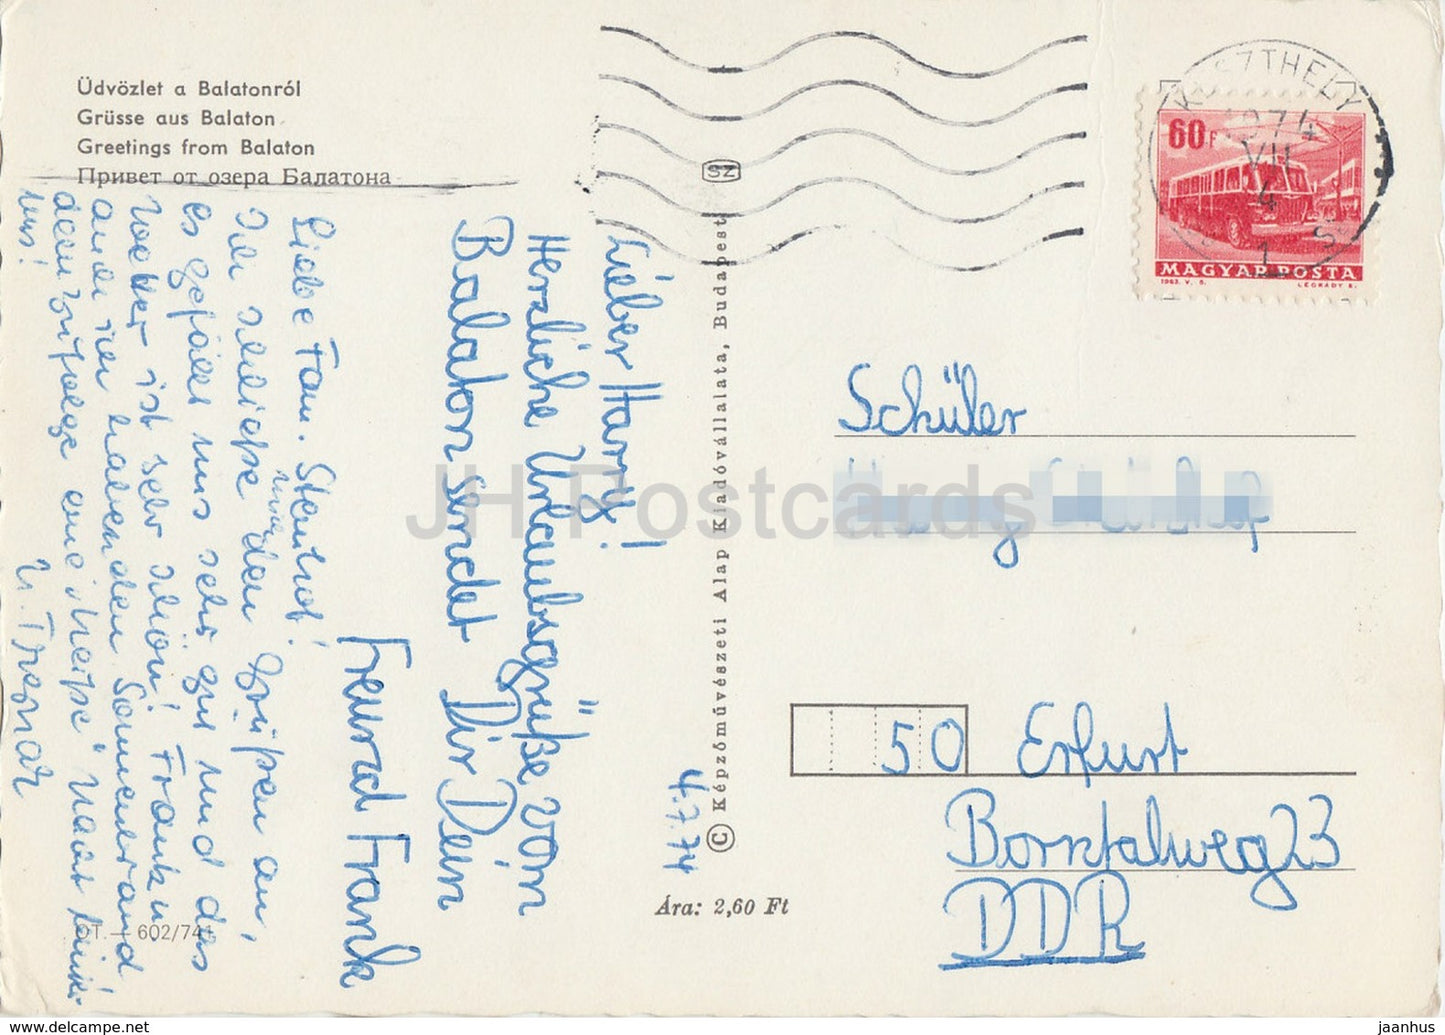 Üdvözlet a Balatonról
Grüsse aus Balaton
Greetings from Balaton
Привет от озера Балатона
Lieber Harry!
Herzliche Urlaubsgrüße vom
Balaton sendet Dir Dein
Freund Frank
4.7.74
Liebe Fam.
Ich schließe mich den Grüßen an,
es gefällt uns sehr gut und das
Wetter ist sehr schön! Frank u.
auch ich haben den Sonnenbrand
demzufolge eine
uns!
OT. — 602/741
SZ
© Képzőművészeti Alap Kiadóvállalata, Budapest
Ára: 2,60 Ft
KESZTHELY
1974
VII
4
1
60F
MAGYAR POSTA
1963. V. 5.
LÉGRÁDY S.
Schüler
50 Erfurt
Borntalweg 23
DDR
JH Postcards
jaanhus @ www.delcampe.net